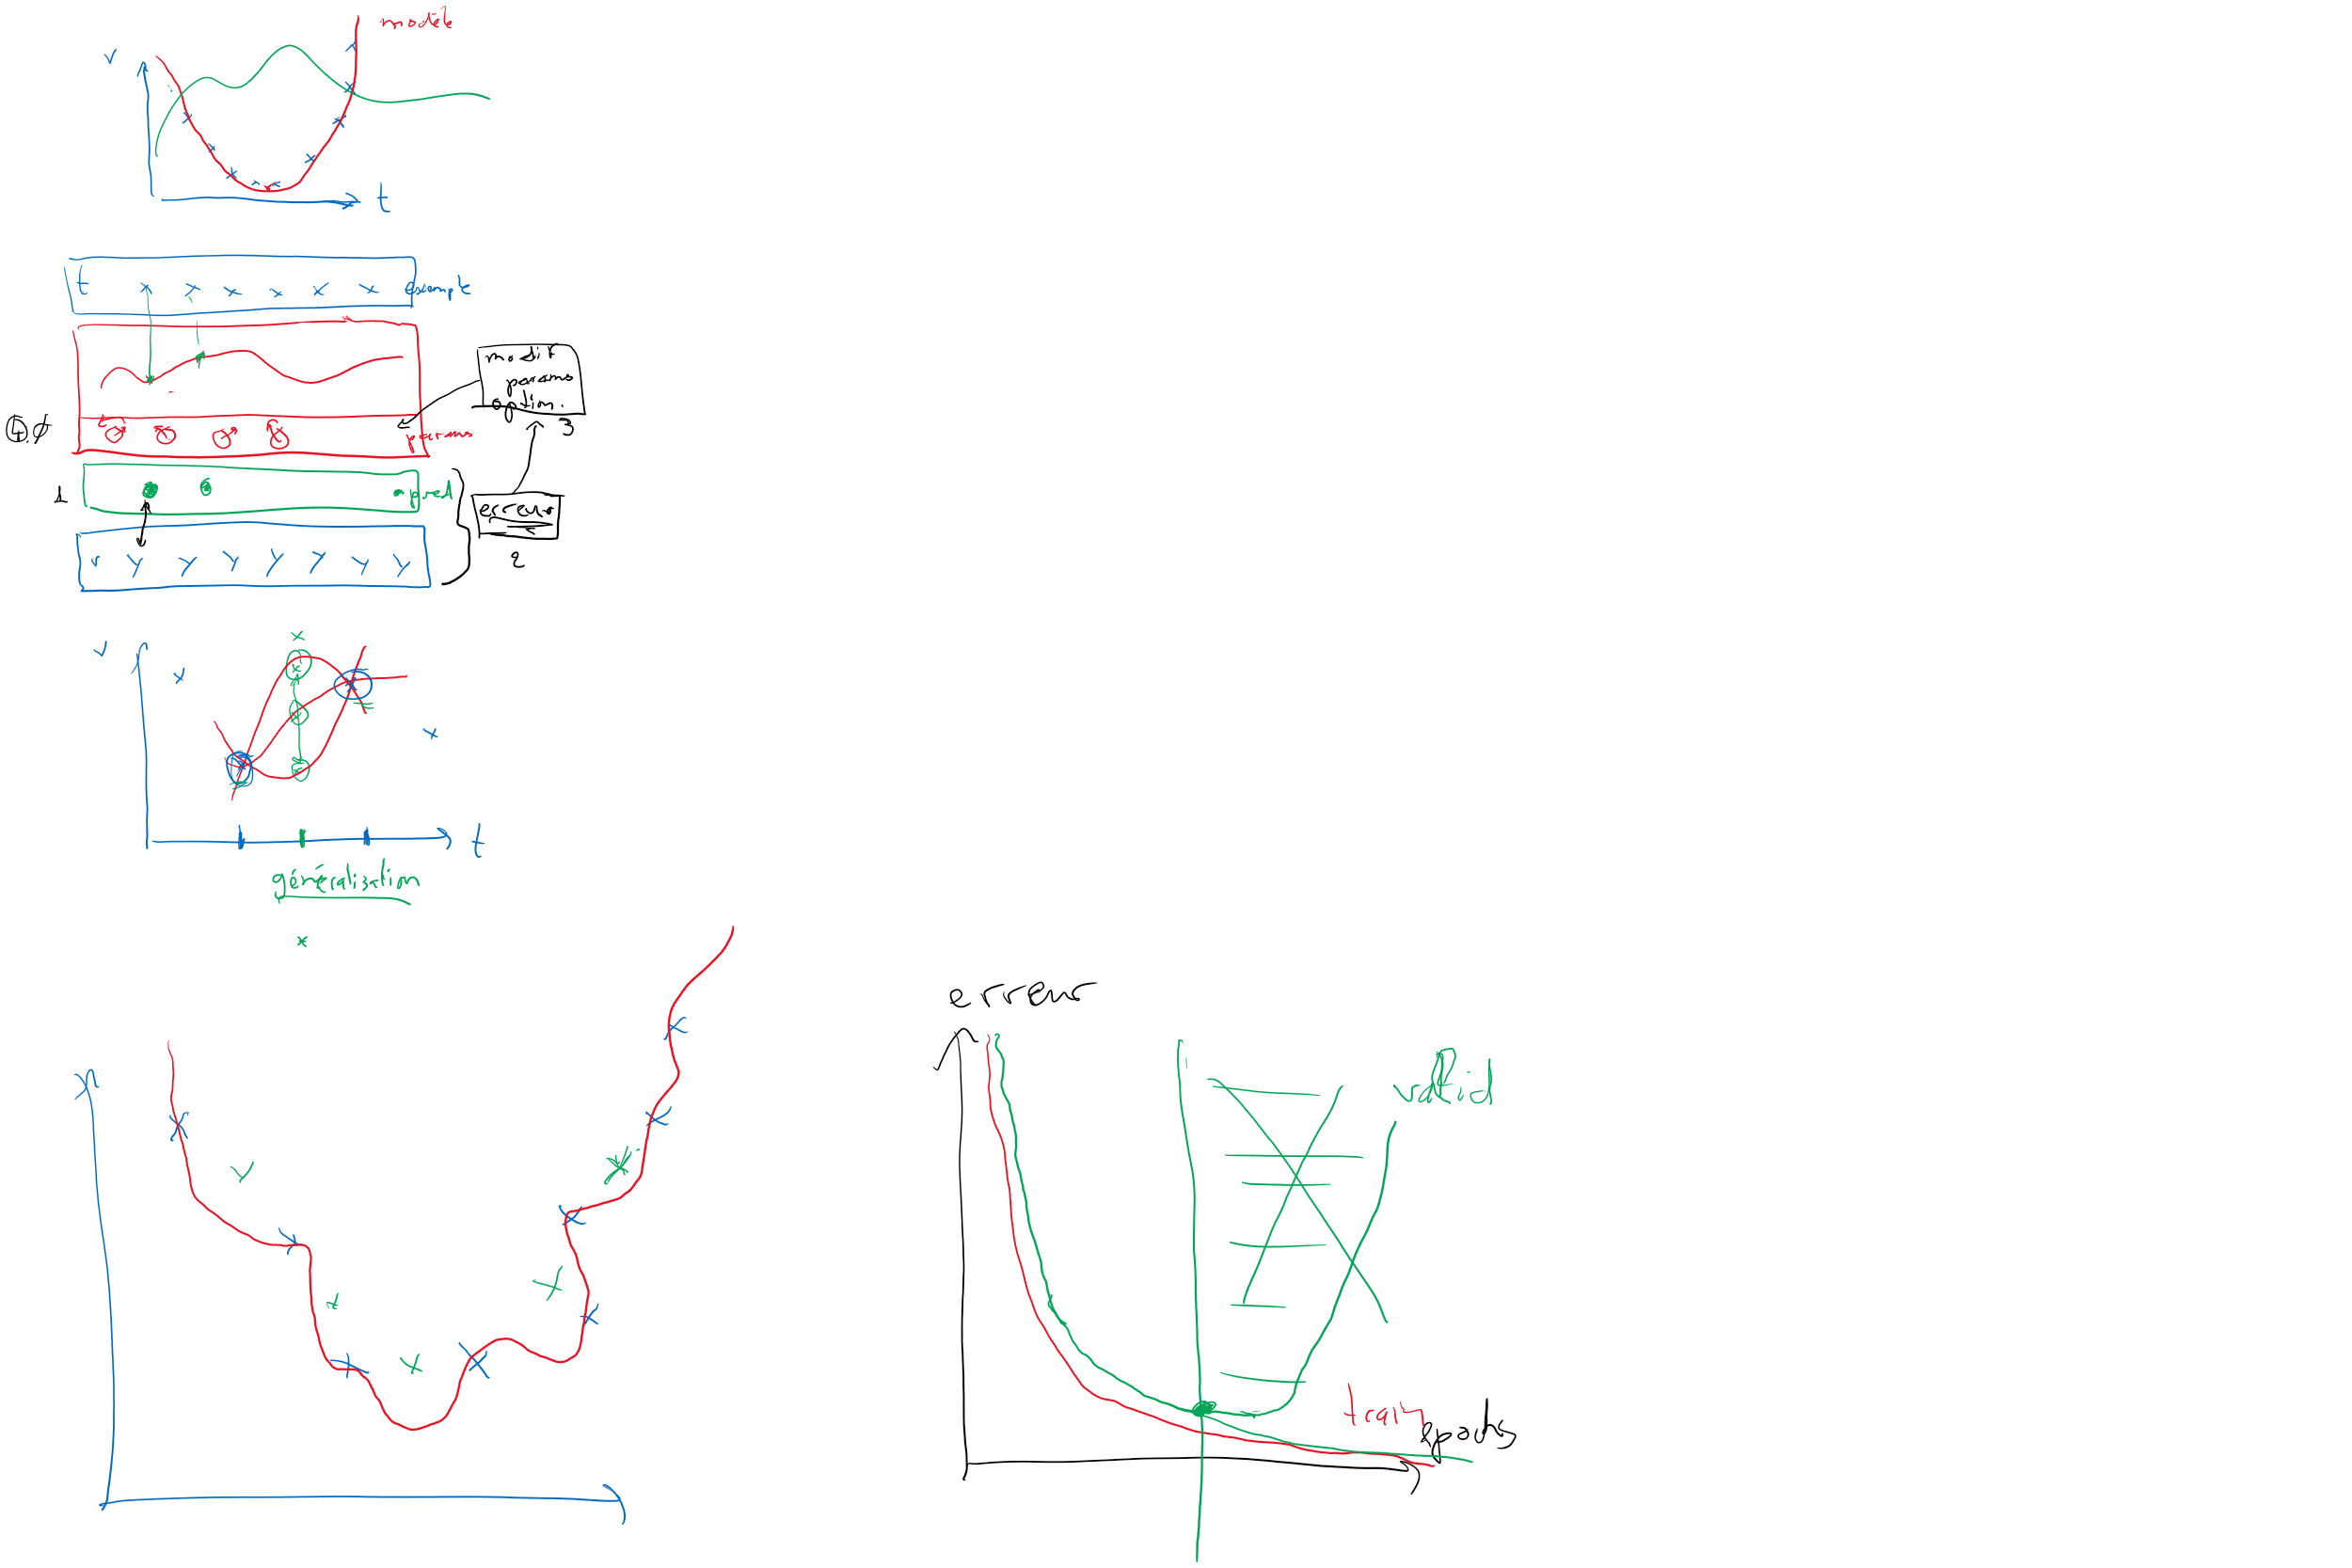 modèle
v
t
t x x x x x x exemple
modif
params
optim.
3
params
1
pred
erreur
2
v y y y y y y y
v
t
généralisation
erreur
valid
train
epochs